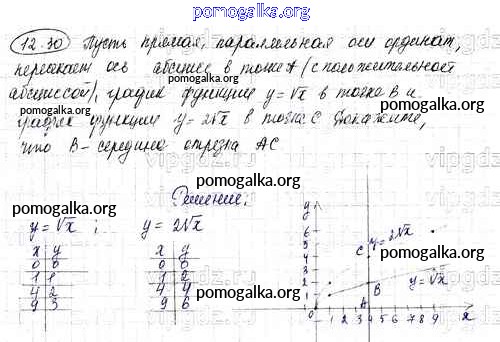 pomogalka.org
12.30 Пусть прямая, параллельная оси ординат,
пересекает ось абсцисс в точке А (с положительной
абсциссой), график функции y=√x в точке В и
график функции y=2√x в точке С. Докажите,
что В-середина отрезка АС
pomogalka.org
pomogalka.org
pomogalka.org
vipgdz
Решение:
pomogalka.org
pomogalka.org
y=√x ; y=2√x
x y x y
0 0 0 0
1 1 1 2
4 2 4 4
9 3 9 6
y
6
5
4
3
2
1
0 1 2 3 4 5 6 7 8 9 x
C y=2√x
B y=√x
A
pomogalka.org
pomogalka.org
pomogalka.org